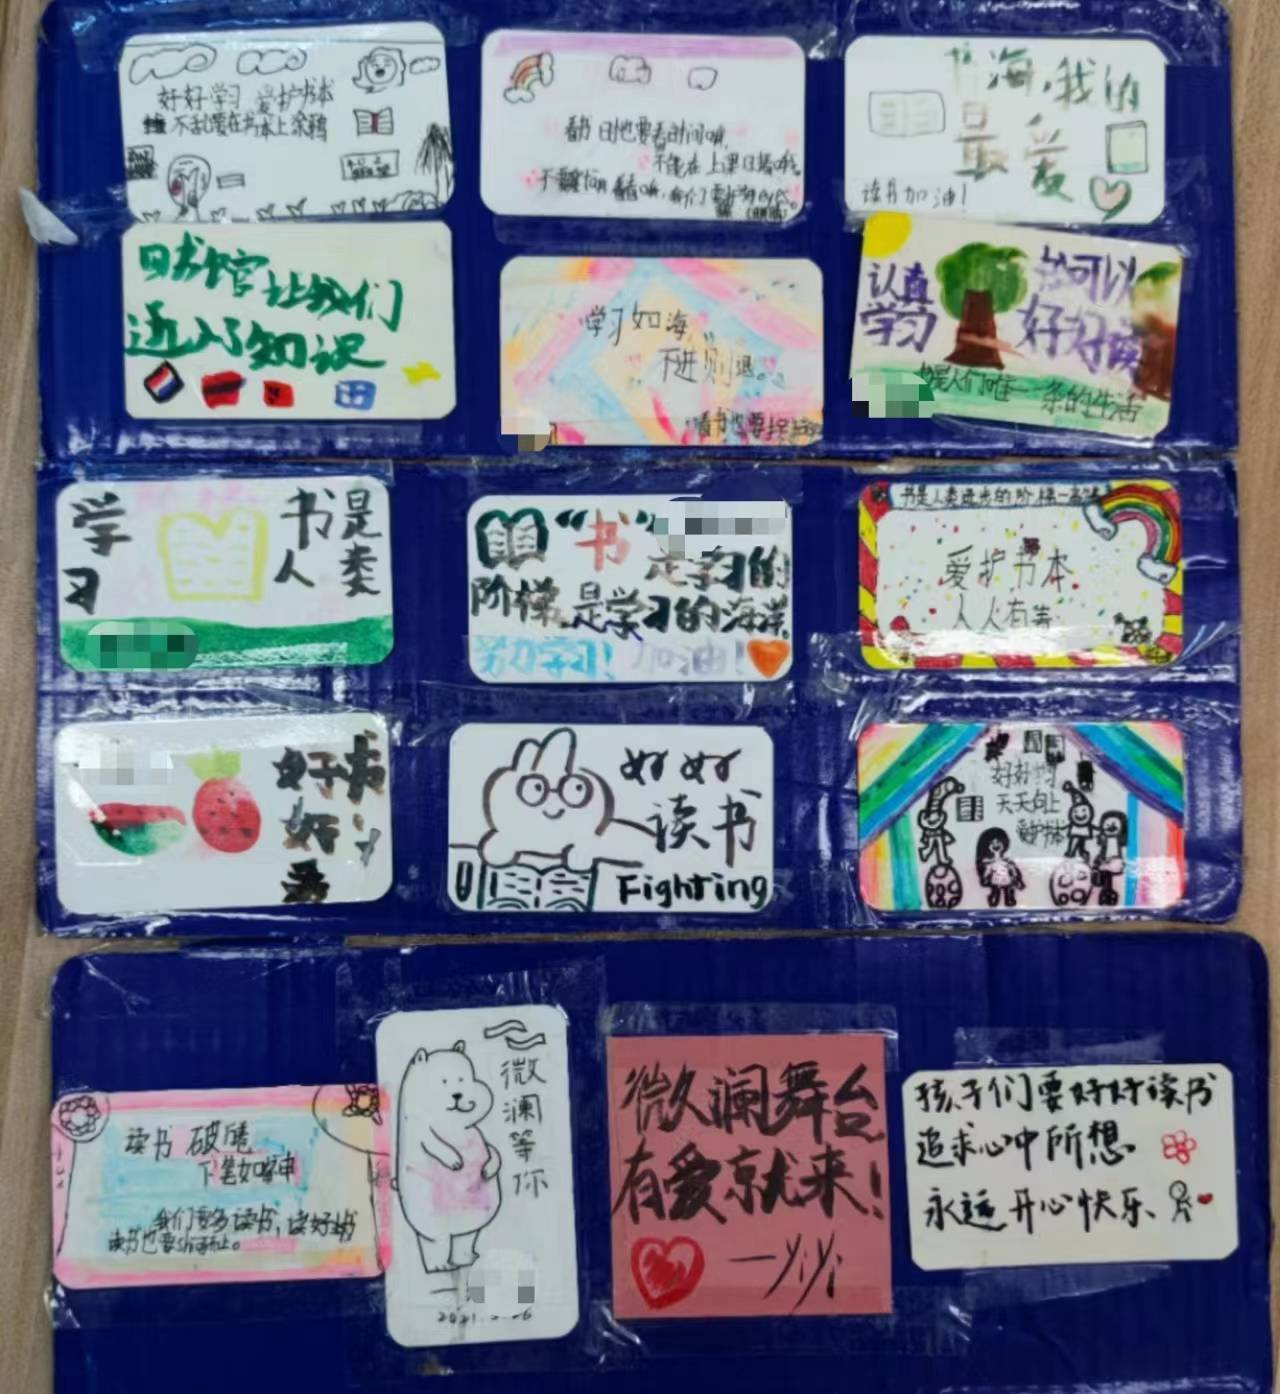 好好学习 爱护书本
不乱要在书本上涂鸦
看书日也要看时间哦,
不能在上课日看哦,
书海,我的
最爱
读书加油!
图书馆让我们
进入了知识
学习如海
不进则退。
看书也要
认真
学习
你可以
好好读
书是人们唯一一条的生活
学习
书是
人类
"书"
是学习的
阶梯,是学习的海洋。
努力学习! 加油!
书是人类进步的阶梯
爱护书本
人人有责
好书
好
好好
读书
Fighting
好好学习
天天向上
爱护书本
读书破
下笔如有神
我们要多读书,读好书
读书也要
微澜等你
微澜舞台
有爱就来!
—yiyi
孩子们要好好读书
追求心中所想
永远开心快乐、